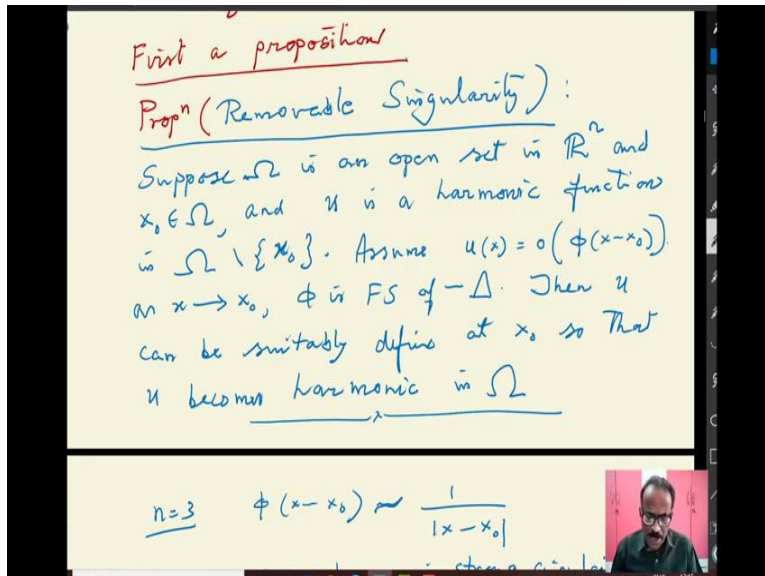 First a proposition
Propⁿ (Removable Singularity) :
Suppose Ω is an open set in ℝⁿ and
x₀ ∈ Ω, and u is a harmonic function
in Ω \ {x₀}. Assume u(x) = o(ϕ(x-x₀)).
as x → x₀, ϕ is FS of -Δ. Then u
can be suitably define at x₀ so that
u becomes harmonic in Ω
n=3 ϕ(x-x₀) ~ 1/|x-x₀|